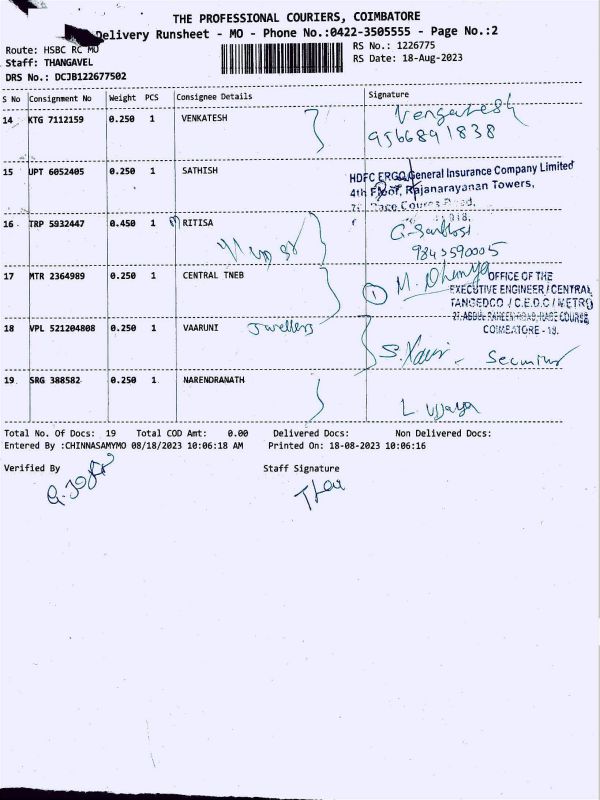 THE PROFESSIONAL COURIERS, COIMBATORE
Delivery Runsheet - MO - Phone No.:0422-3505555 - Page No.:2
Route: HSBC RC MO
RS No.: 1226775
Staff: THANGAVEL
RS Date: 18-Aug-2023
DRS No.: DCJB122677502
S No Consignment No Weight PCS Consignee Details Signature
14 KTG 7112159 0.250 1 VENKATESH Vengatesh
9566891838
15 UPT 6052405 0.250 1 SATHISH
HDFC ERGO General Insurance Company Limited
4th Floor, Rajanarayanan Towers,
Race Course Road,
16 TRP 5932447 0.450 1 RITISA G. Santhosh
9843590005
17 MTR 2364989 0.250 1 CENTRAL TNEB 1 M. Dhanya
OFFICE OF THE
EXECUTIVE ENGINEER / CENTRAL
TANGEDCO / C.E.D.C / METRO
COIMBATORE - 18.
18 VPL 521204808 0.250 1 VAARUNI Jwellers
Security
19 SRG 388582 0.250 1 NARENDRANATH
L. Vijaya
Total No. Of Docs: 19 Total COD Amt: 0.00 Delivered Docs: Non Delivered Docs:
Entered By :CHINNASAMYMO 08/18/2023 10:06:18 AM Printed On: 18-08-2023 10:06:16
Verified By Staff Signature